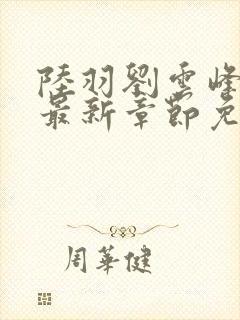 陸羽劉雲峰
最新章節免
周華健